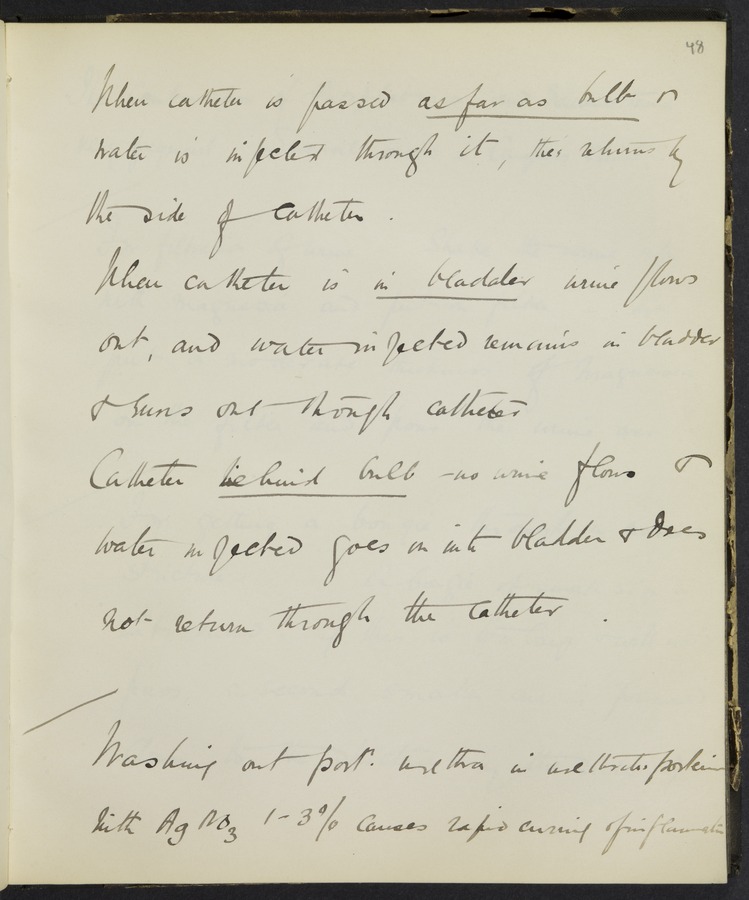 48
When catheter is passed as far as bulb &
water is injected through it, this returns by
the side of catheter.
When catheter is in bladder urine flows
out, and water injected remains in bladder
& runs out through catheter
Catheter behind bulb - no urine flows &
water injected goes on into bladder & does
not return through the catheter.
Washing out post. urethra in urethritis posterior
with AgNO3 1-3% causes rapid curing of inflammation